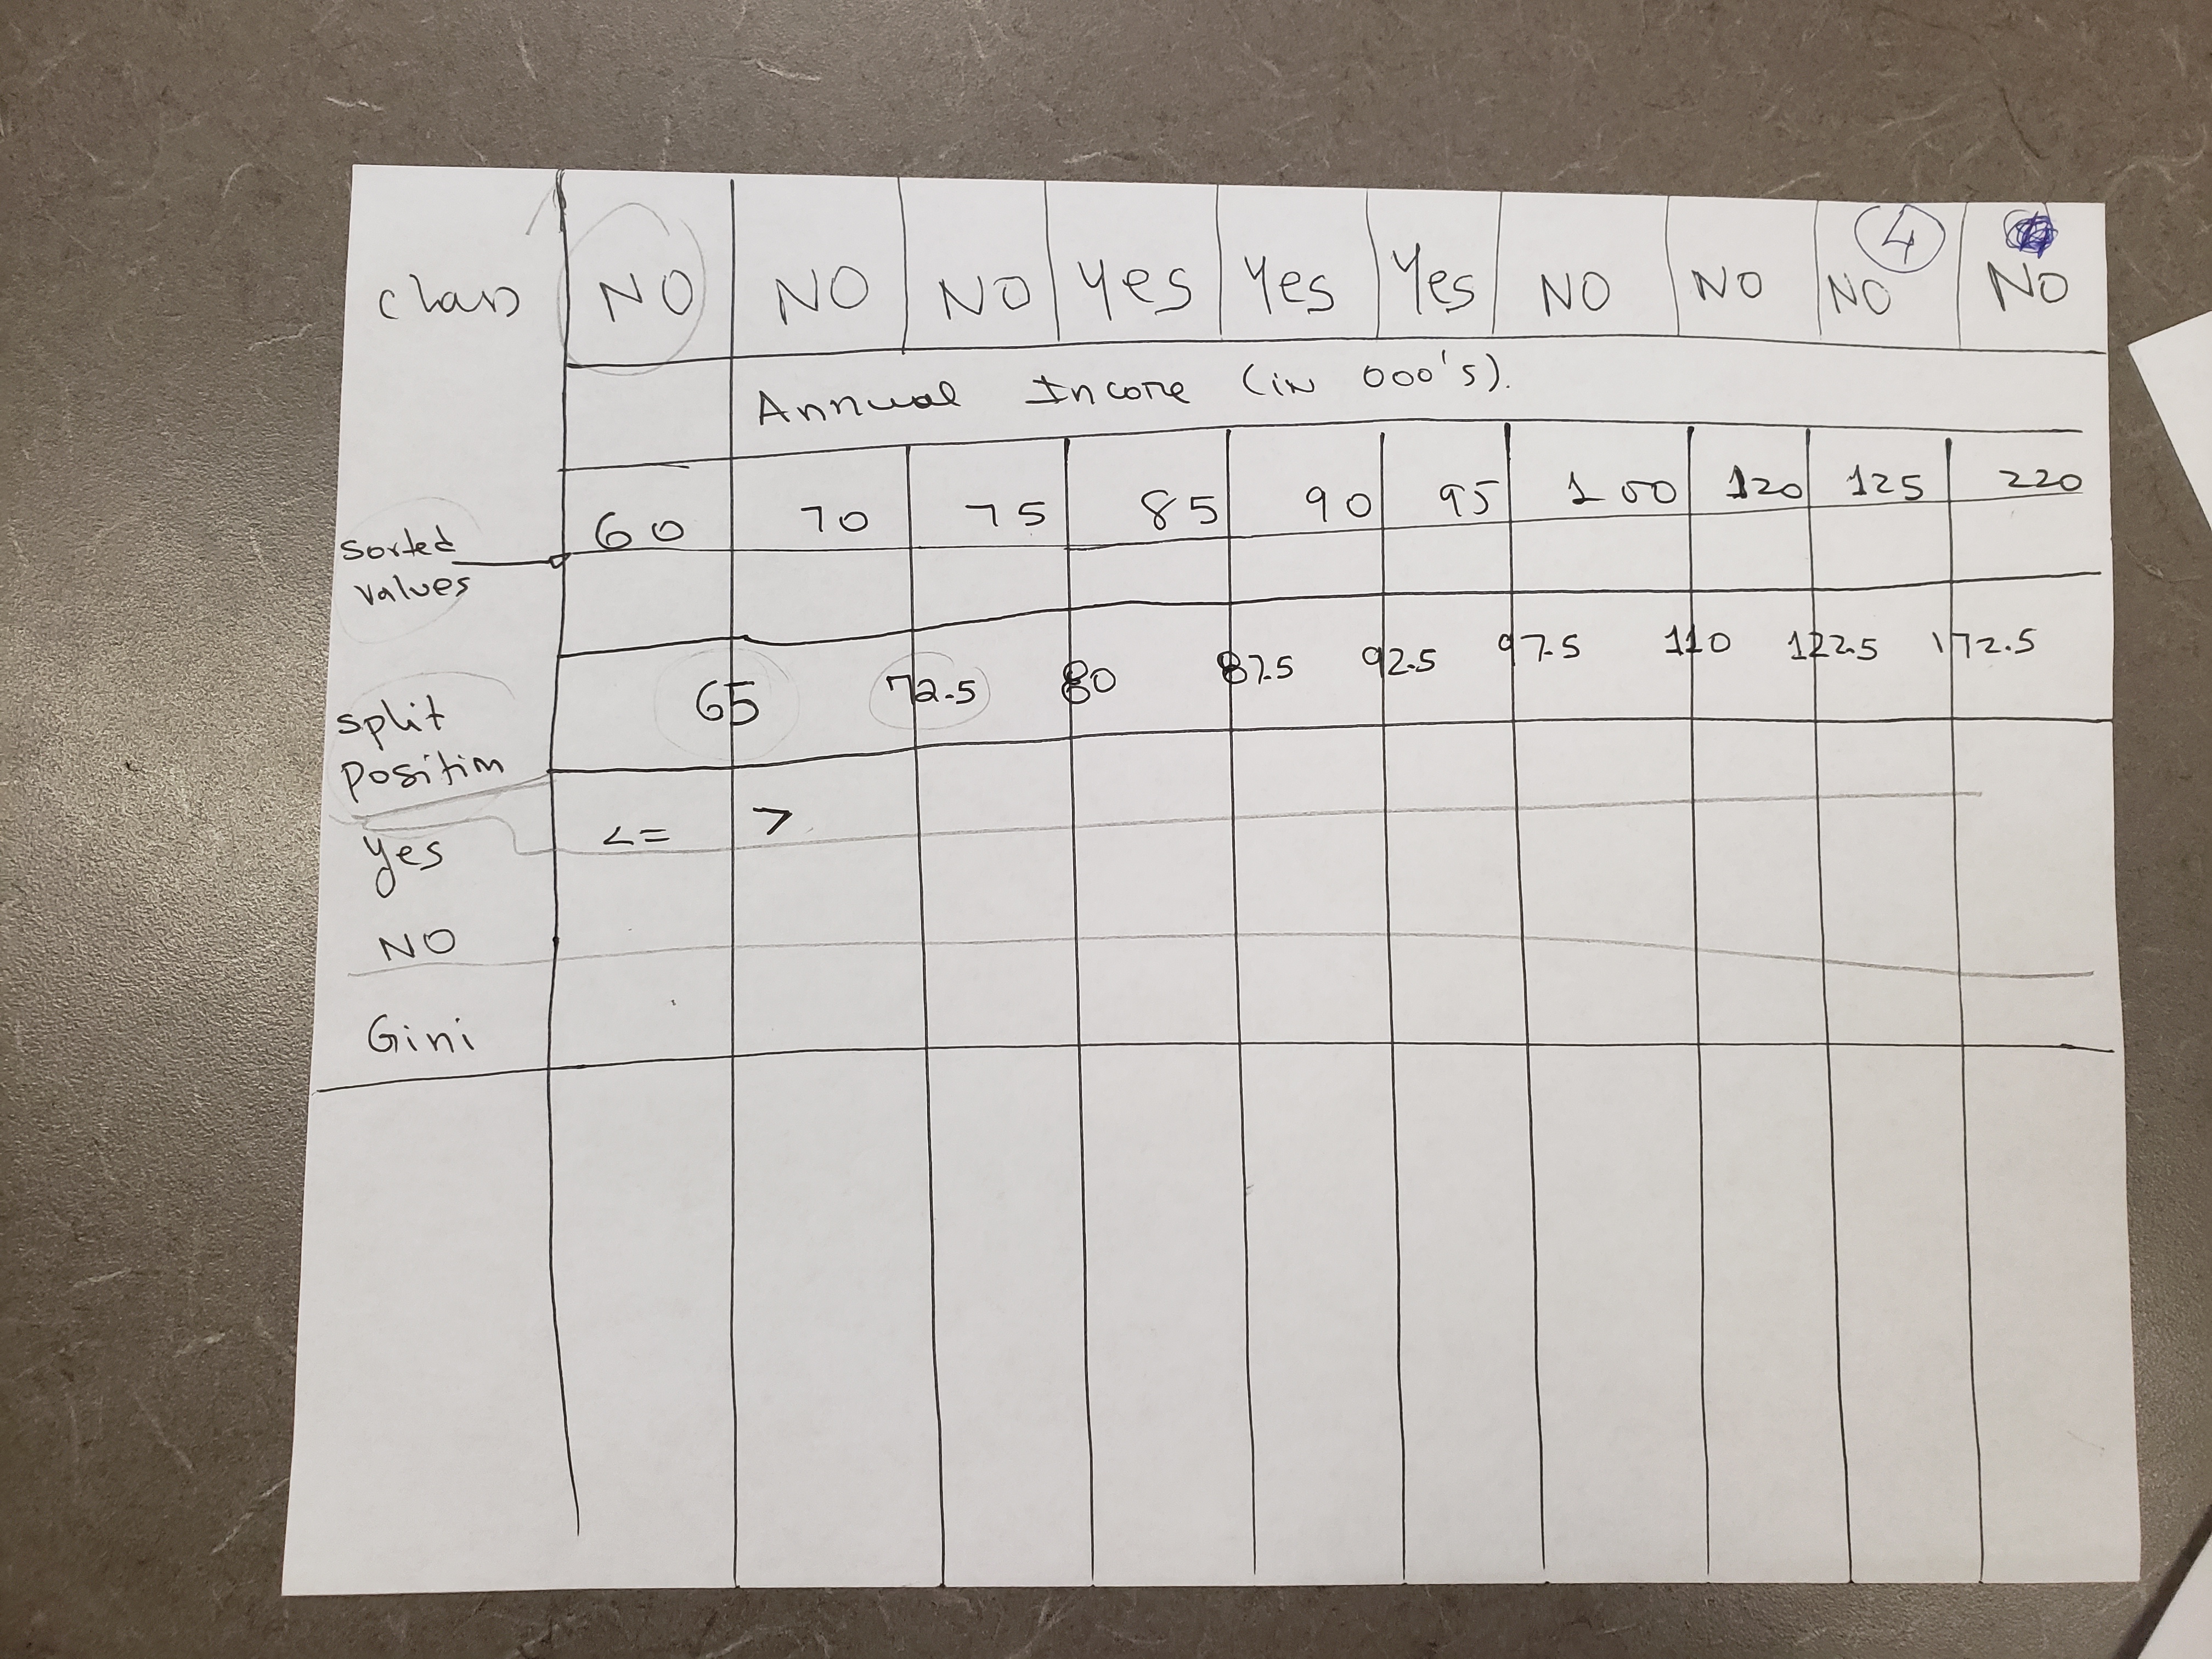 ④
class NO NO NO Yes Yes Yes NO NO NO NO
Annual Income (in 000's).
sorted values 60 70 75 85 90 95 100 120 125 220
split position 65 72.5 80 87.5 92.5 97.5 110 122.5 172.5
<= >
Yes
NO
Gini